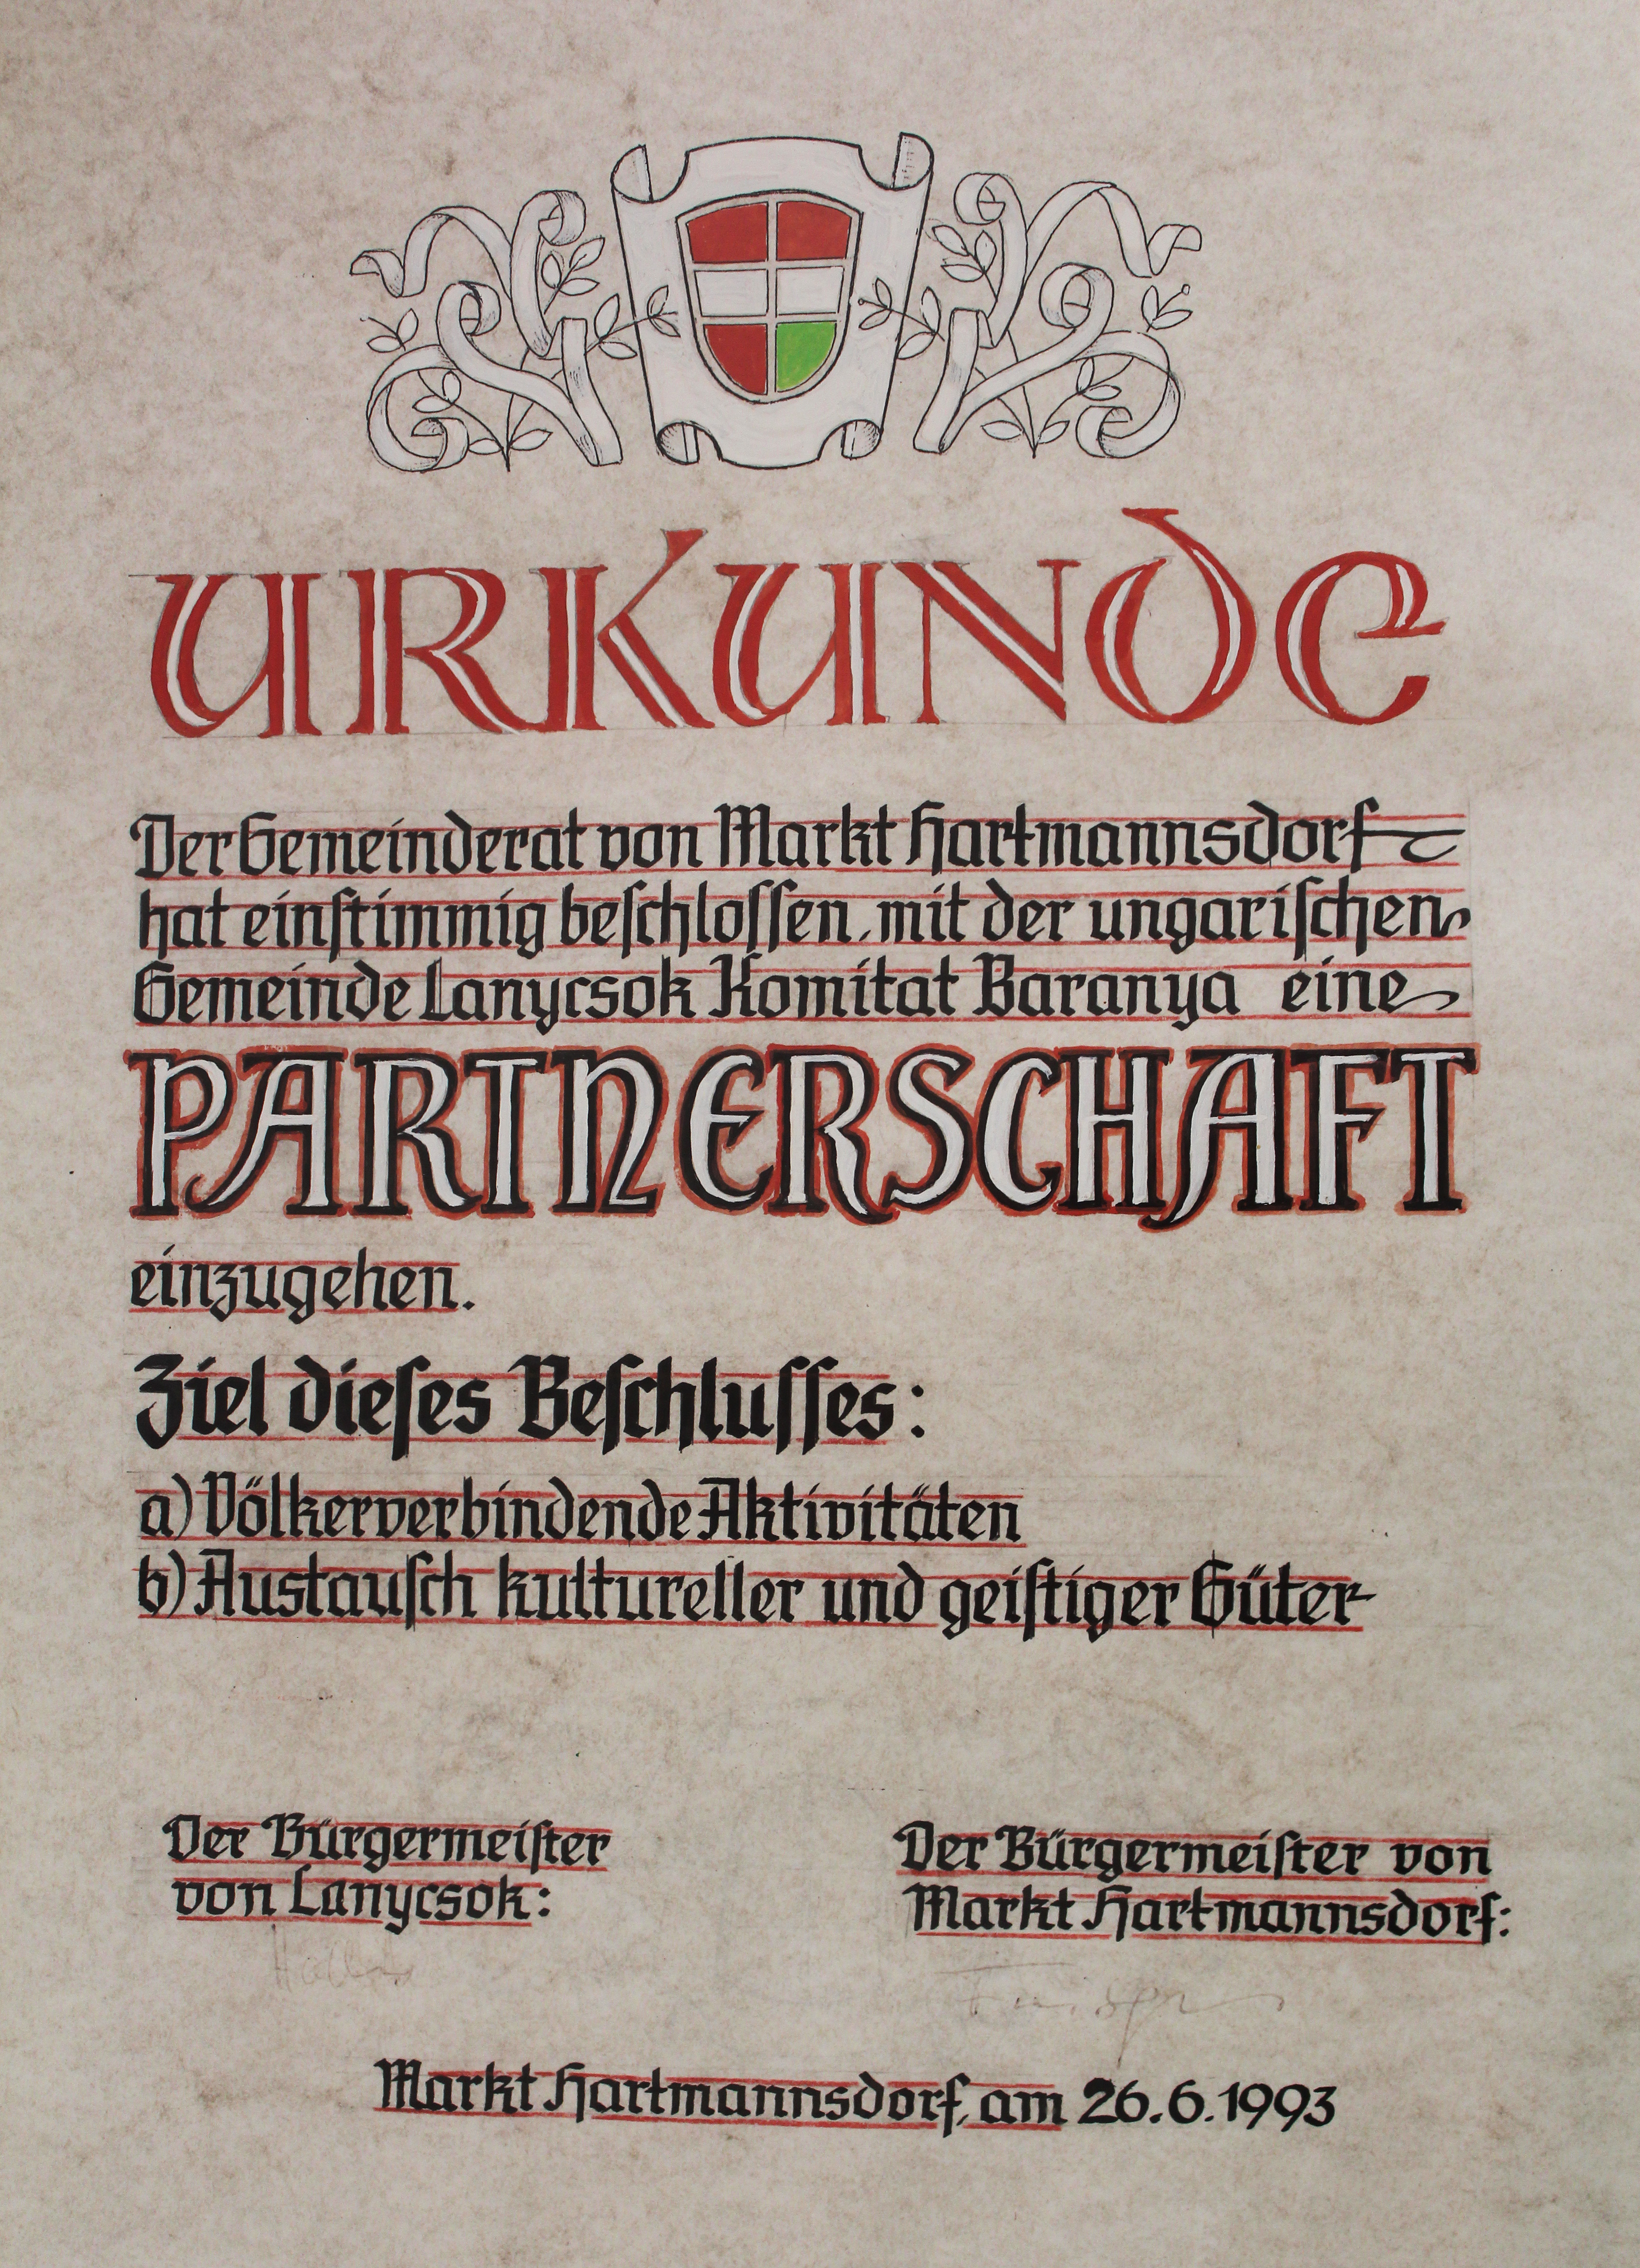 URKUNDE
Der Gemeinderat von Markt Hartmannsdorf
hat einſtimmig beſchloſſen, mit der ungariſchen
Gemeinde Lanycsok Komitat Baranya eine
PARTNERSCHAFT
einzugehen.
Ziel dieſes Beſchluſſes:
a) Völkerverbindende Aktivitäten
b) Austauſch kultureller und geiſtiger Güter
Der Bürgermeiſter
von Lanycsok:
Der Bürgermeiſter von
Markt Hartmannsdorf:
Markt Hartmannsdorf, am 26.6.1993